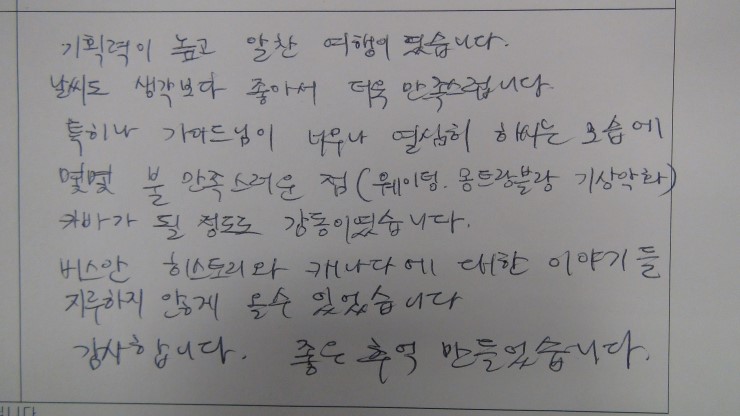 기획력이 높고 알찬 여행이 였습니다.
날씨도 생각보다 좋아서 더욱 만족스럽니다.
특히나 가아드님이 너무나 열심히 하시는 모습에
몇몇 불 만족스러운 점(웨이텅. 몽트랑블랑 기상악화)
카바가 될 정도로 감동이였습니다.
버스안 히스토리와 캐나다에 대한 이야기들
지루하지 않게 올수 있었습니다
감사합니다. 좋은 추억 만들었습니다.
니다